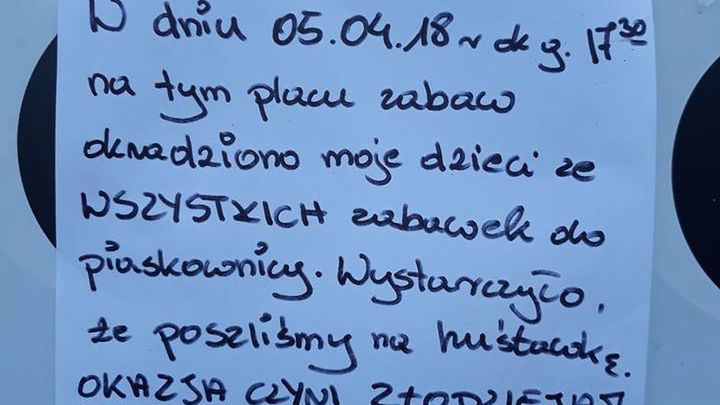 W dniu 05.04.18 r ok g. 17³⁰
na tym placu zabaw
okradziono moje dzieci ze
WSZYSTKICH zabawek do
piaskownicy. Wystarczyło,
że poszliśmy na huśtawkę.
OKAZJA CZYNI ZŁODZIEJEM